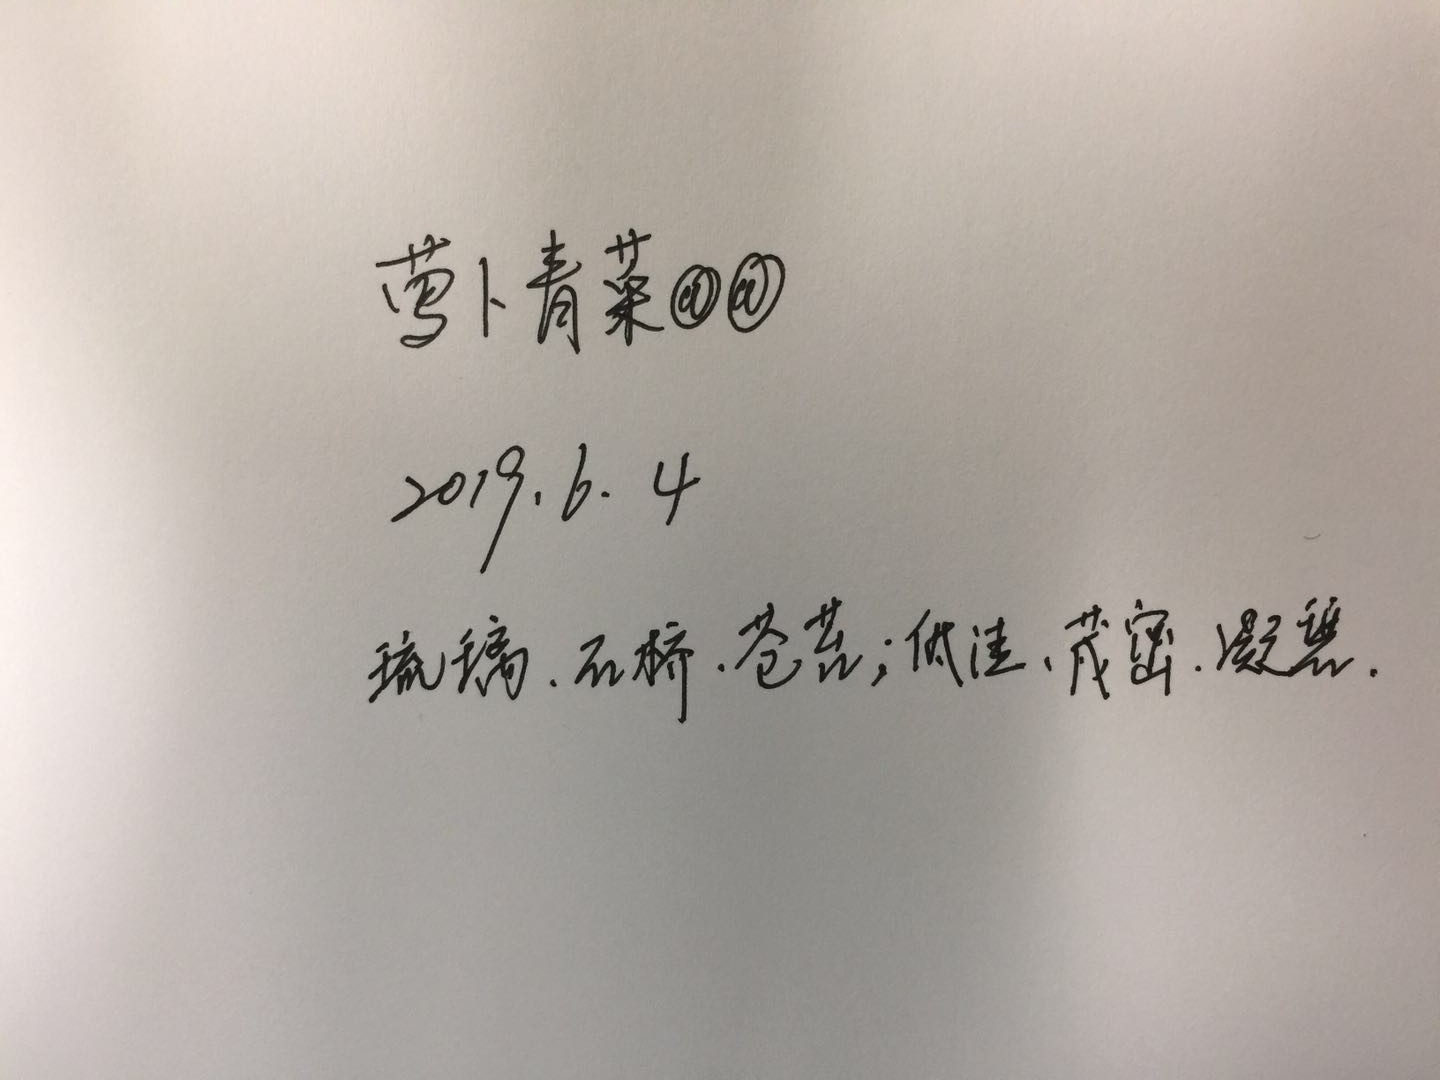 萝卜青菜@@
2019.6.4
琉璃.石桥.苍苔;低洼、茂密.凝碧.